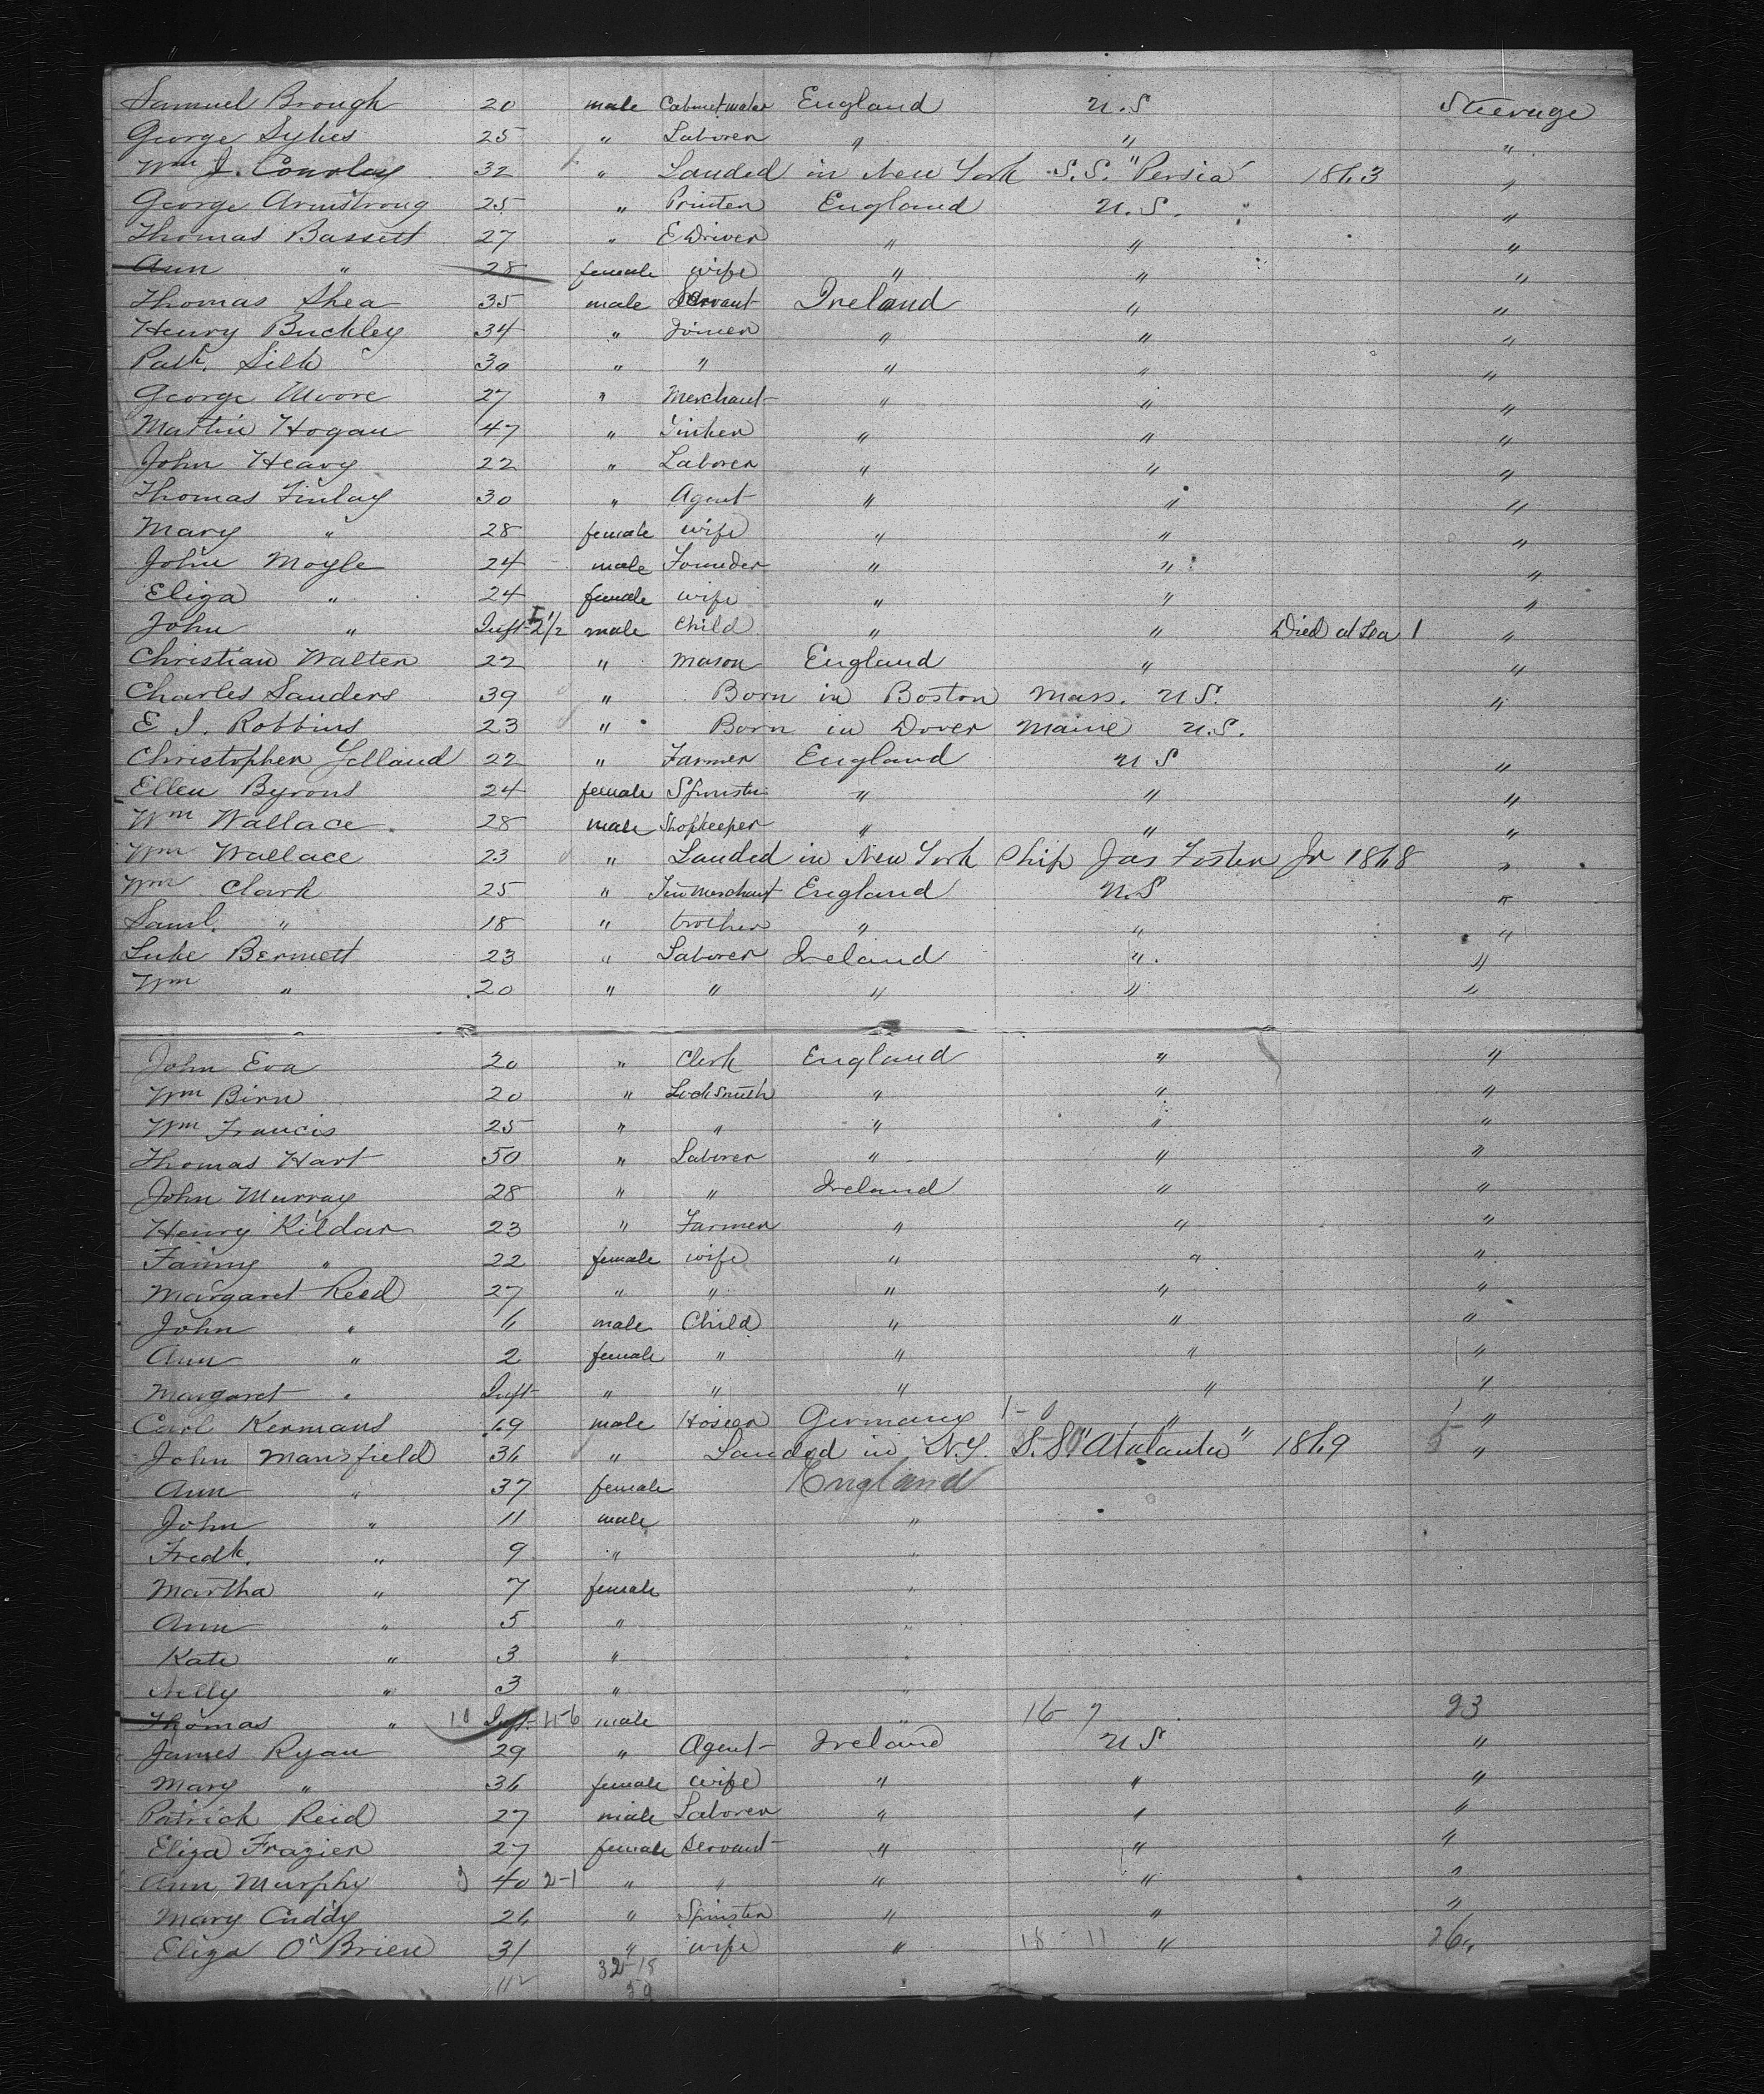 Samuel Brough 20 male Cabinetmaker England U.S Steerage
George Sykes 25 " Laborer " " "
Wm J. Courlay 32 " Landed in New York S.S. "Persia" 1863 "
George Armstrong 25 " Printer England U.S. "
Thomas Bassett 27 " E Driver " " "
Ann " 28 female wife " " "
Thomas Shea 35 male Servant Ireland " "
Henry Buckley 34 " Joiner " " "
Patk. Silk 30 " " " " "
George Moore 27 " Merchant " " "
Martin Hogan 47 " Tinker " " "
John Heavy 22 " Laborer " " "
Thomas Finlay 30 " Agent " " "
Mary " 28 female wife " " "
John Moyle 24 male Founder " " "
Eliza " 24 female wife " " "
John " Inft male Child " " Died at Sea 1 "
Christian Walter 22 " Mason England " "
Charles Sanders 39 " Born in Boston Mass. U.S. "
E J. Robbins 23 " Born in Dover Maine U.S.
Christopher Yelland 22 " Farmer England U S "
Ellen Byrons 24 female Spinster " " "
Wm Wallace 28 male Shopkeeper " " "
Wm Wallace 23 " Landed in New York Ship Jas Foster Jr 1868 "
Wm Clark 25 " Tin Merchant England U.S "
Saml. " 18 " brother " " "
Luke Bermett 23 " Laborer Ireland " "
Wm " 20 " " " " "
John Eva 20 " Clerk England " "
Wm Birn 20 " Locksmith " " "
Wm Francis 25 " " " " "
Thomas Hart 50 " Laborer " " "
John Murray 28 " " Ireland " "
Henry Kildar 23 " Farmer " " "
Fanny " 22 female wife " " "
Margaret Reed 27 " " " " "
John " 6 male Child " " "
Ann " 2 female " " " "
Margaret " Inft " " " " "
Carl Kermans 19 male Hosier Germany 1-0 " "
John Mansfield 36 " Landed in N.Y. S.S "Atalanta" 1869 "
Ann " 37 female England
John " 11 male "
Fredk. " 9 " "
Martha " 7 female "
Ann " 5 " "
Kate " 3 " "
Nelly " 3 " "
Thomas " 10 Inft 11-6 male " 16-7 23
James Ryan 29 " Agent Ireland U S "
Mary " 36 female wife " " "
Patrick Reid 27 male Laborer " " "
Eliza Frazier 27 female Servant " " "
Ann Murphy 40 2-1 " " " " "
Mary Cuddy 26 " Spinster " " "
Eliza O'Brien 31 " wife " 18-11 " 26
112 32-18
50